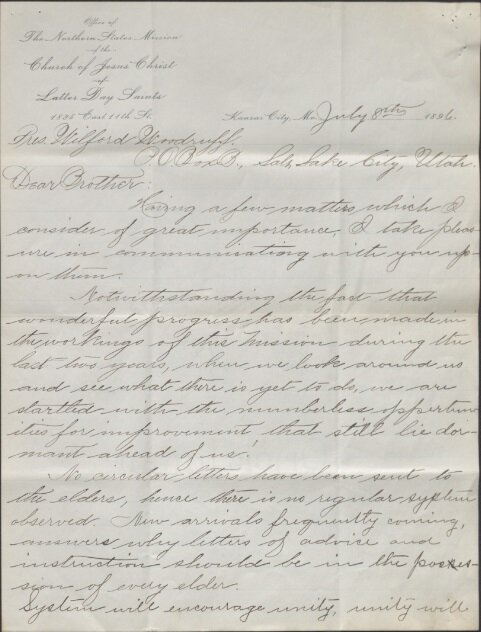 Office of
The Northern States Mission
of the
Church of Jesus Christ
of
Latter Day Saints
1825 East 11th St.
Kansas City, Mo. July 8th 1896.
Pres. Wilford Woodruff.
P.O. Box B., Salt Lake City, Utah.
Dear Brother:
Having a few matters which I
consider of great importance, I take pleas-
ure in communicating with you up-
on them.
Notwithstanding the fact that
wonderful progress has been made in
the workings of this Mission during the
last two years, when we look around us
and see what there is yet to do, we are
startled with the numberless opportun
ities for improvement, that still lie dor-
mant ahead of us.
No circular letters have been sent to
the elders, hence there is no regular system
observed. New arrivals frequently coming,
answers why letters of advice and
instruction should be in the posses-
sion of every elder.
System will encourage unity, unity will